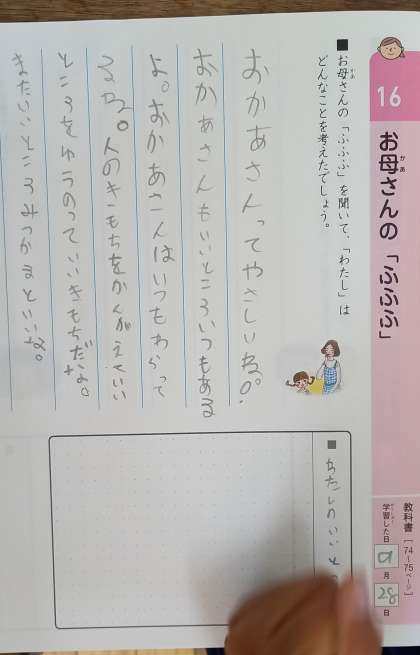 16
お母さんの「ふふふ」
かあ
教科書［74〜75ページ］
学習した日
がくしゅう
9月28日
■お母さんの「ふふふ」を聞いて、「わたし」は
かあ
どんなことを考えたでしょう。
おかあさんってやさしいね。
おかあさんもいいところいつもある
よ。おかあさんはいつもわらって
るね。人のきもちをかんがえていい
ところをゆうのっていいきもちだな。
またいいところみつかるといいな。
■わたしのいいと